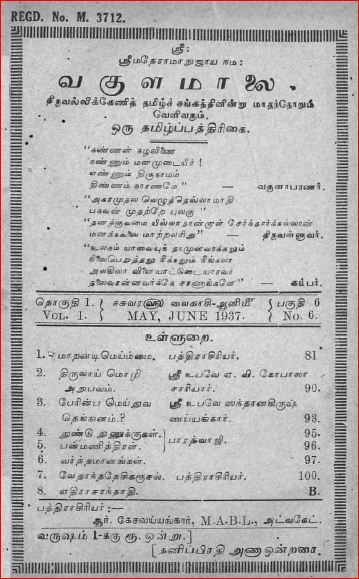 REGD. No. M. 3712.
ஸ்ரீ:
ஸ்ரீமதேராமாநுஜாய நம:
வகுளமாலை.
திருவல்லிக்கேணித் தமிழ்ச் சங்கத்தினின்று மாதந்தோறும்
வெளிவரும்.
ஒரு தமிழ்ப்பத்திரிகை.
"கண்ணன் கழலிணை
நண்ணும் மனமுடையீர்!
எண்ணும் திருநாமம்
திண்ணம் நாரணமே" — வகுளாபரணர்.
"அகரமுதல வெழுத்தெல்லாமாதி
பகவன் முதற்றே யுலகு"
"தனக்குவமை யில்லாதான்றாள் சேர்ந்தார்க்கல்லால்
மனக்கவலை மாற்றலரிது" — திருவள்ளுவர்.
"உலகம் யாவையுந் தாமுளவாக்கலும்
நிலைபெறுத்தலு நீக்கலும் நீங்கலா
அலகிலா விளையாட்டுடையாரவர்
தலைவரன்னவர்க்கே சரணாங்களே" — கம்பர்.
தொகுதி 1. ஈசுவரஹு வைகாசி-ஆனிமீ பகுதி 6
VOL. 1. MAY, JUNE 1937. No. 6.
உள்ளுறை.
1. மாறனடிமெய்ம்மை. பத்திராதிபர். 81
2. திருவாய் மொழி ஸ்ரீ உபவே ஏ. வி. கோபாலா
அநுபவம். சாரியார். 90.
3. பேரின்ப மெய்துவ ஸ்ரீ உபவே ஸந்தானகிருஷ்
தெங்ஙனம்.? ணய்யங்கார். 93.
4. துண்டு துணுக்குகள். பாரத்வாஜி. 95.
5. பன்மணித்திரள். 96.
6. வர்த்தமானங்கள். 97.
7. வேதாந்ததேசிகருசல். பத்திராதிபர். 100.
8. எதிராசரந்தாதி. B.
பத்திராதிபர்:—
ஆர். கேசவய்யங்கார், M.A.B.L., அட்வகேட்.
வருஷம் 1-க்கு ரூ. ஒன்று.]
[தனிப்பிரதி அணா ஒன்றரை.